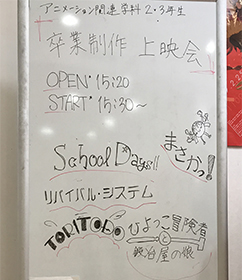 アニメーション関連学科2・3年生
卒業制作 上映会!!
OPEN・15:20
START・15:30～
まさかっ!
School Days!!
リバイバル・システム
TORITOBO
ひよっこ冒険者
と
鍛冶屋の娘